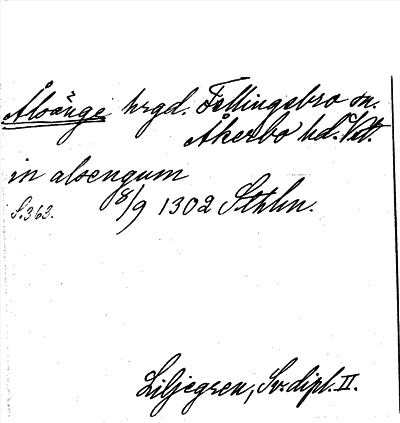 Älvänge hrgd. Fellingsbro sn.
Åkerbo hd. Vstl.
in aluengum
S. 363. 8/9 1302 Sthlm.
Liljegren, Sv. dipl. II.